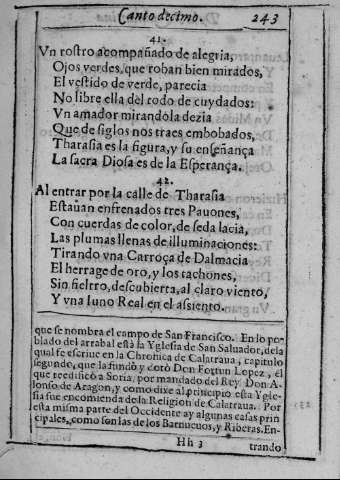 Canto decimo. 243
41.
Vn rostro acompañado de alegria,
Ojos verdes, que roban bien mirados,
El vestido de verde, parecia
No libre ella del rodo de cuydados:
Vn amador mirandola dezia
Que de siglos nos traes embobados,
Tharasia es la figura, y su enseñança
La sacra Diosa es de la Esperança.
42.
Al entrar por la calle de Tharasia
Estauan enfrenados tres Pauones,
Con cuerdas de color, de seda lacia,
Las plumas llenas de illuminaciones:
Tirando vna Carroça de Dalmacia
El herrage de oro, y los tachones,
Sin fieltro, descubierra, al claro viento,
Y vna Iuno Real en el assiento.
que se nombra el campo de San Francisco. En lo po-
blado del arrabal està la Yglesia de San Saluador, de la
qual se escriue en la Chronica de Calatraua, capitulo
segundo, que la fundò y dotò Don Fortun Lopez, el
que reedificò a Soria, por mandado del Rey Don A-
lonso de Aragon, y como dixe al principio esta Ygle-
sia fue encomienda de la Religion de Calatraua. Por
esta misma parte del Occidente ay algunas casas prin
cipales, como son las de los Barnueuos, y Riberas. En-
Hh 3 trando